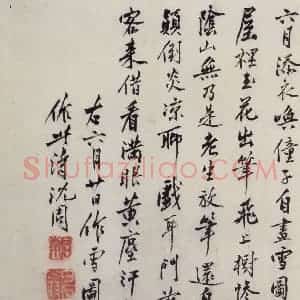 六月添衣喚僮子自畫雪圖
屋裡玉花出筆飛上樹慘
陰山無乃是老生放筆還
顛倒炎凉聊戲耳門前
客来借看满眼黄塵汗
右六月廿日作雪圖
作此詩沈周
Shufaziliao.com